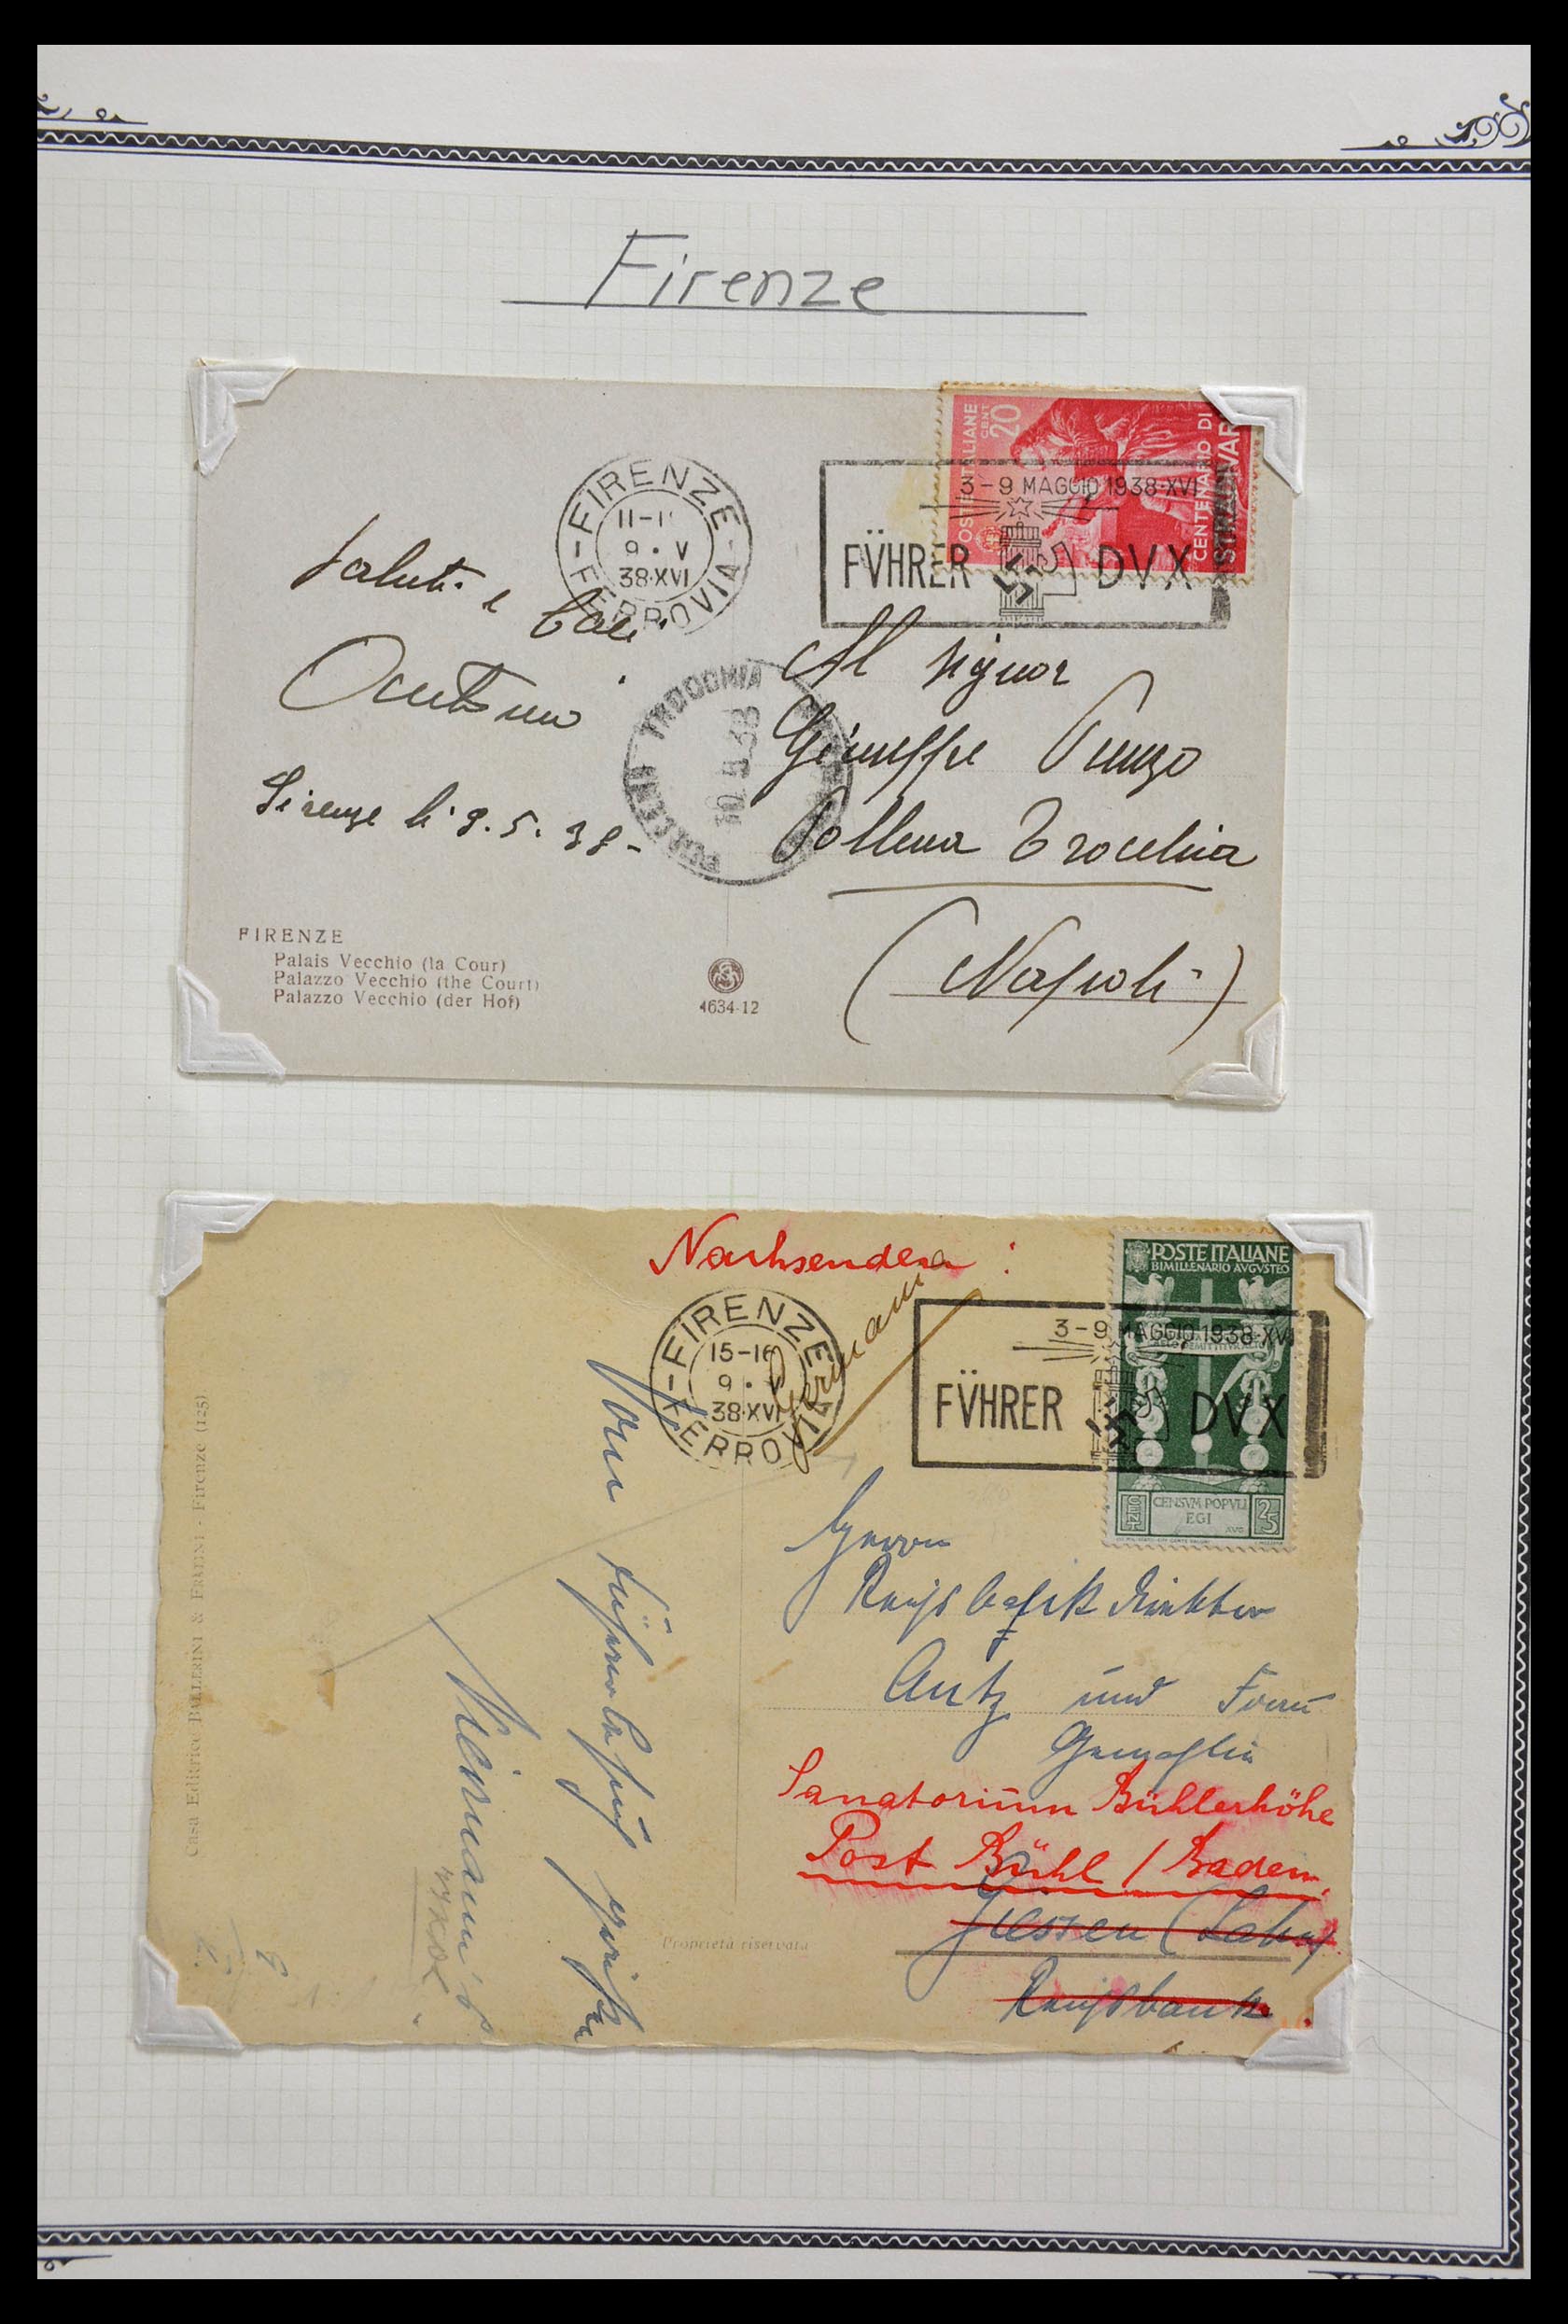 Firenze
POSTE ITALIANE
CENT 20
CENTENARIO DI
STRADIVARI
FIRENZE
9 · V
38·XVI
FERROVIA
3-9 MAGGIO 1938·XVI
FÜHRER DVX
Saluti e baci
Firenze li 9.5.38-
POLLENA TROCCHIA
10.5.38
Al Signor
Giuseppe
Pollena Trocchia
(Napoli)
FIRENZE
Palais Vecchio (la Cour)
Palazzo Vecchio (the Court)
Palazzo Vecchio (der Hof)
4634-12
Nachsenden:
Germania
FIRENZE
15-16
9 · V
38·XVI
FERROVIA
3-9 MAGGIO 1938·XVI
FÜHRER DVX
POSTE ITALIANE
BIMILLENARIO AVGVSTEO
CENSVM POPVLI
EGI
AVG
CENT 25
Herrn
Reichsbankdirektor
Antz und Frau
Gemahlin
Sanatorium Bühlerhöhe
Post Bühl / Baden.
Giessen (Lahn)
Reichsbank
Vom Führerbesuch grüßen
Casa Editrice BALLERINI & FRATINI - Firenze (125)
Proprietà riservata